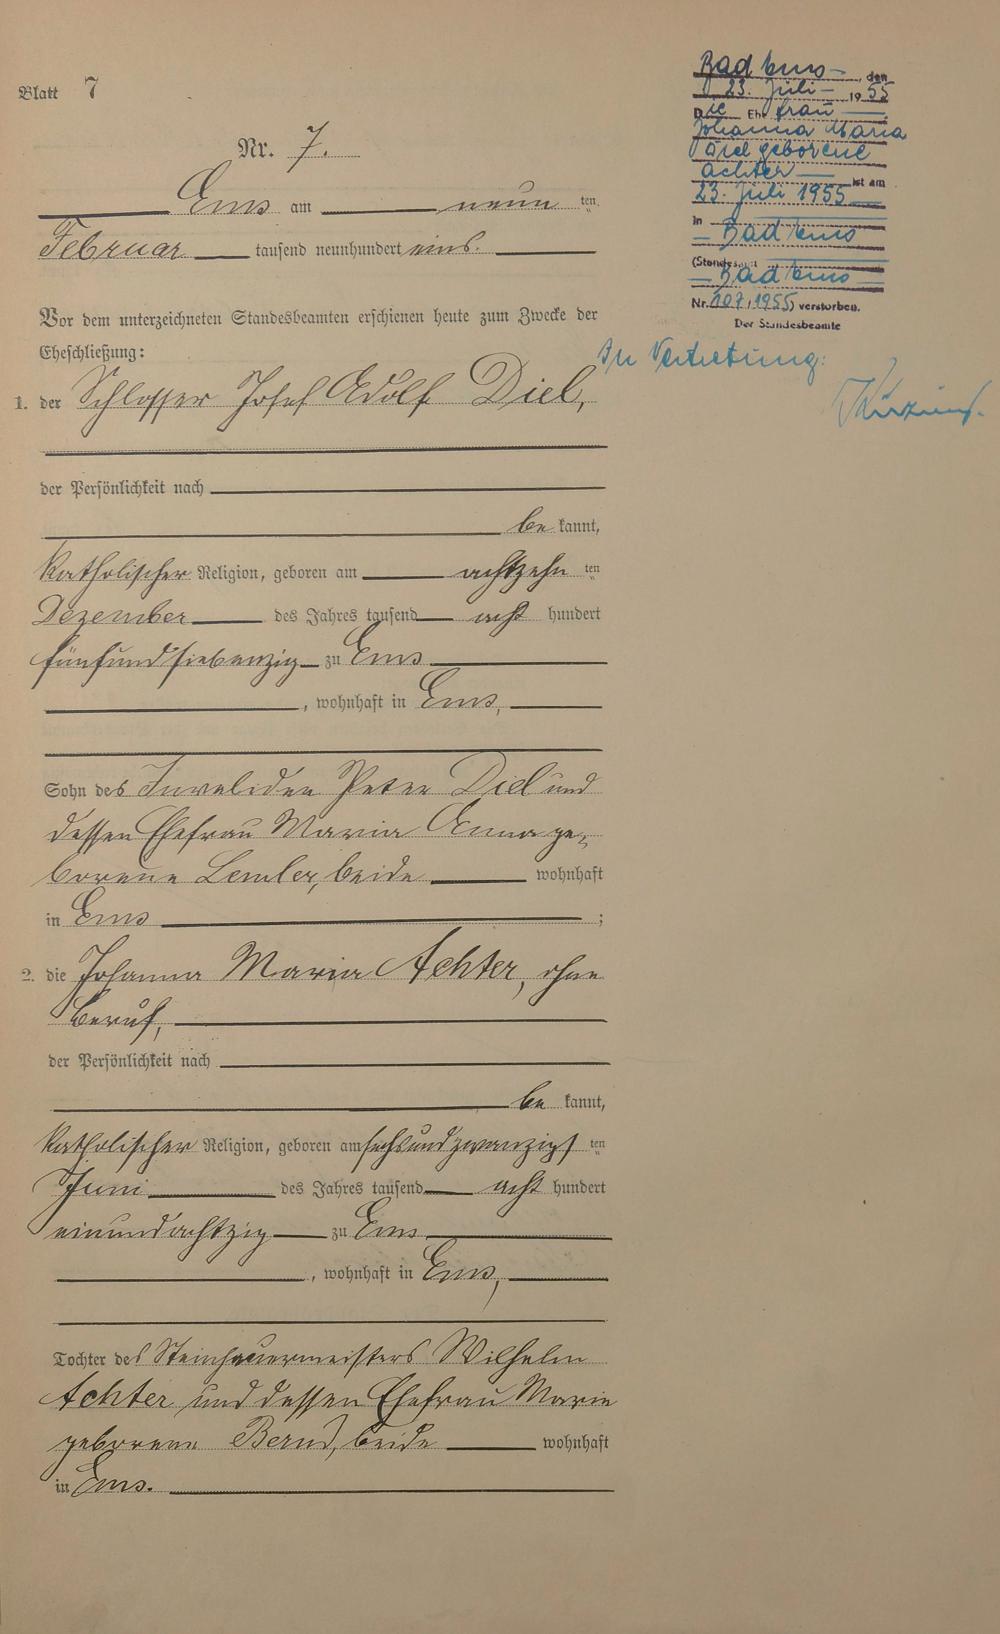 Blatt 7
Nr. 7.
Ems am neun ten
Februar tausend neunhundert eins.
Vor dem unterzeichneten Standesbeamten erschienen heute zum Zwecke der
Eheschließung:
1. der Schlosser Josef Adolf Diel,
der Persönlichkeit nach
be kannt,
katholischer Religion, geboren am achtzehn ten
Dezember des Jahres tausend acht hundert
fünfundsiebenzig zu Ems
, wohnhaft in Ems,
Sohn des Invaliden Peter Diel und
dessen Ehefrau Maria Anna ge-
borene Lemler, beide wohnhaft
in Ems ;
2. die Johanna Maria Achter, ohne
Beruf,
der Persönlichkeit nach
be kannt,
katholischer Religion, geboren am sechsundzwanzigs ten
Juni des Jahres tausend acht hundert
einundachtzig zu Ems
, wohnhaft in Ems,
Tochter des Steinhauermeisters Wilhelm
Achter und dessen Ehefrau Maria
geborene Bernd, beide wohnhaft
in Ems.
Bad Ems, den
23. Juli 1955
Die Ehefrau
Johanna Maria
Diel geborene
Achter ist am
23. Juli 1955
in
Bad Ems
(Standesamt
Bad Ems
Nr. 107/1955) verstorben.
Der Standesbeamte
In Vertretung: